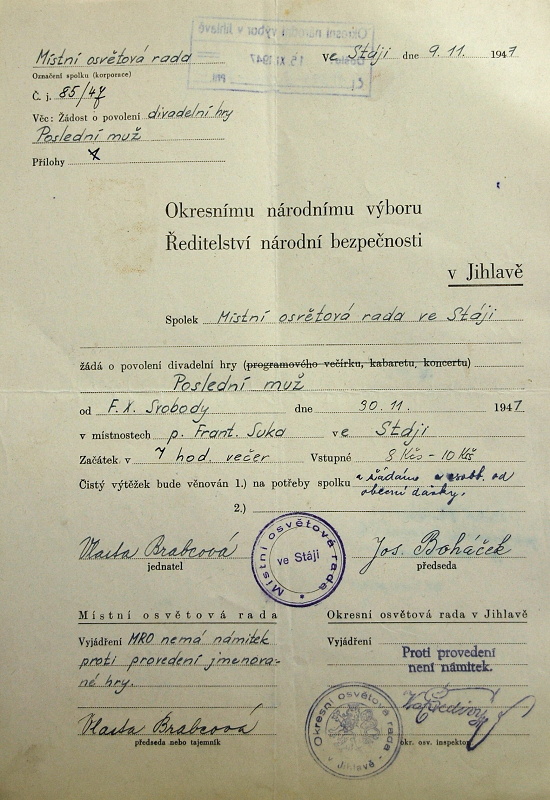 Okresní národní výbor v Jihlavě
Došlo: 15. XI. 1947
Čj.
Příl.
Místní osvětová rada
ve Stáji dne 9. 11. 1947
Označení spolku (korporace)
Č. j. 85/47
Věc: Žádost o povolení divadelní hry
Poslední muž
Přílohy
Okresnímu národnímu výboru
Ředitelství národní bezpečnosti
v Jihlavě
Spolek Místní osvětová rada ve Stáji
žádá o povolení divadelní hry (programového večírku, kabaretu, koncertu)
Poslední muž
od F. X. Svobody dne 30. 11. 1947
v místnostech p. Frant. Suka ve Stáji
Začátek v 7 hod. večer Vstupné 8 Kčs - 10 Kčs
Čistý výtěžek bude věnován 1.) na potřeby spolku a žádáme o osvob. od
obecní dávky.
2.)
Vlasta Brabcová
Jos. Boháček
jednatel
předseda
Místní osvětová rada
ve Stáji
Místní osvětová rada
Okresní osvětová rada v Jihlavě
Vyjádření MRO nemá námitek
proti provedení jmenova-
né hry.
Vyjádření
Proti provedení
není námitek.
Vlasta Brabcová
předseda nebo tajemník
Okresní osvětová rada
v Jihlavě
okr. osv. inspektor